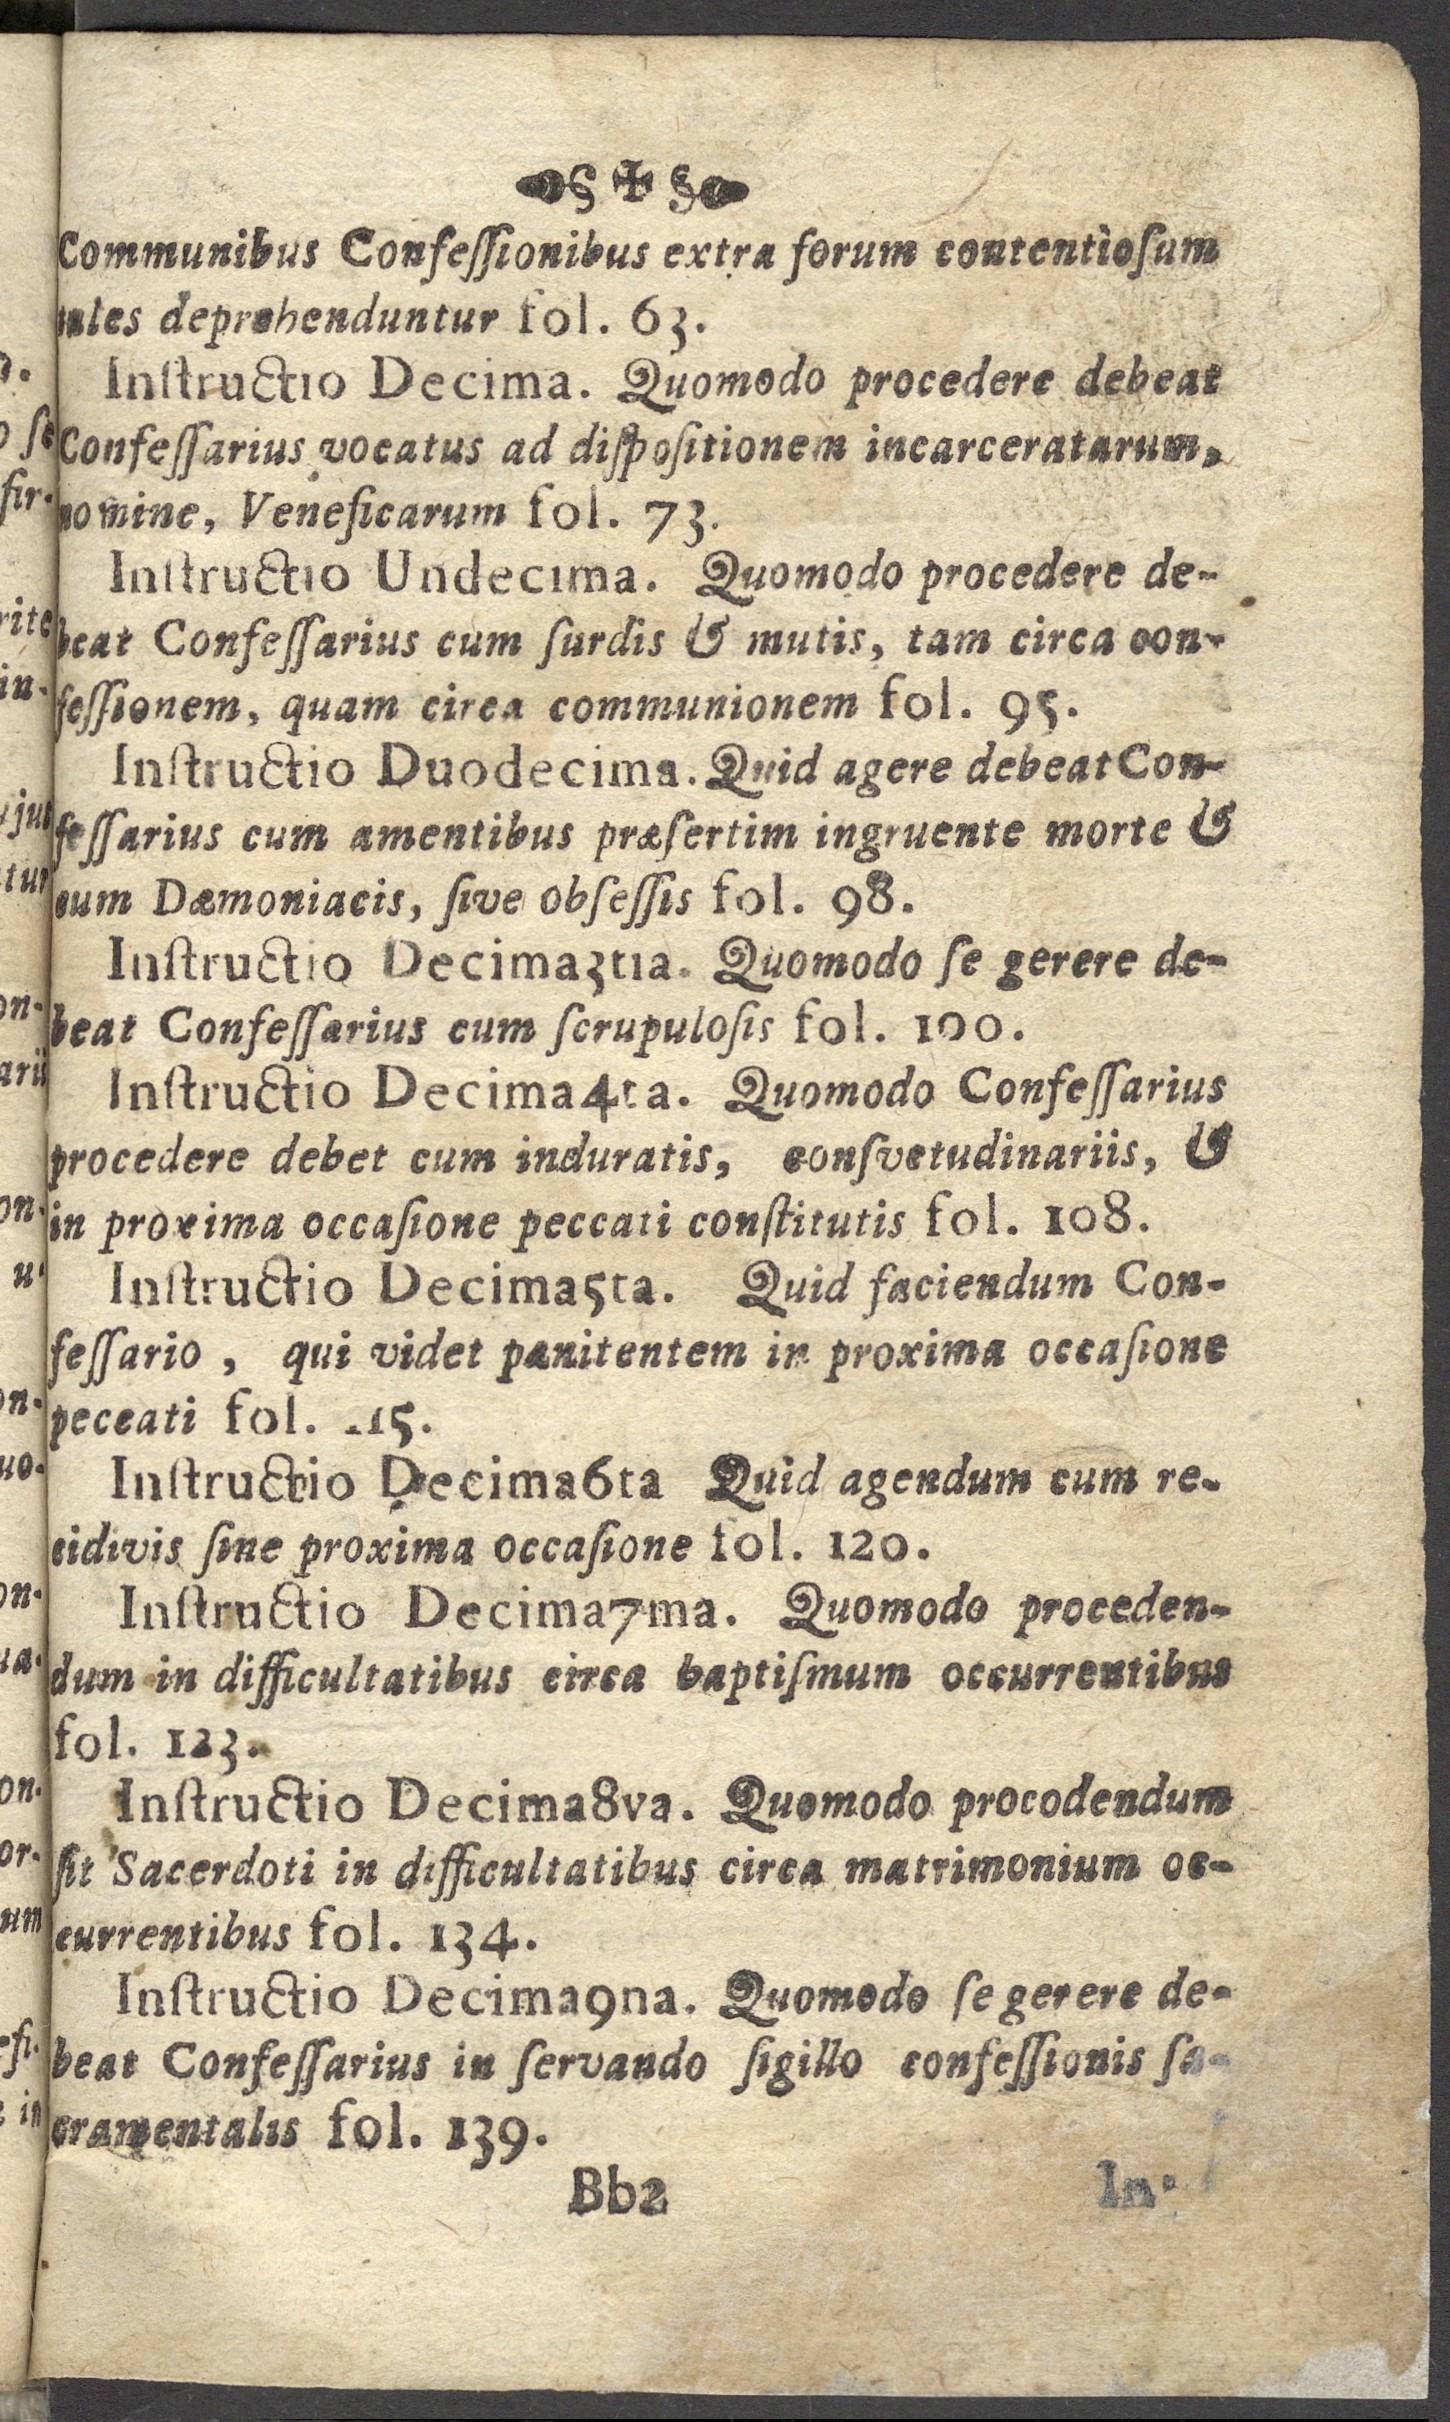 Communibus Confeſſionibus extra forum contentioſum
tales deprehenduntur fol. 63.
Inſtructio Decima. Quomodo procedere debeat
Confeſſarius vocatus ad diſpoſitionem incarceratarum,
nomine, Veneficarum fol. 73.
Inſtructio Undecima. Quomodo procedere de-
beat Confeſſarius cum ſurdis & mutis, tam circa con-
feſſionem, quam circa communionem fol. 95.
Inſtructio Duodecima. Quid agere debeat Con-
feſſarius cum amentibus præſertim ingruente morte &
cum Dæmoniacis, ſive obſeſſis fol. 98.
Inſtructio Decima3tia. Quomodo ſe gerere de-
beat Confeſſarius cum ſcrupuloſis fol. 100.
Inſtructio Decima4ta. Quomodo Confeſſarius
procedere debet cum induratis, conſvetudinariis, &
in proxima occaſione peccati conſtitutis fol. 108.
Inſtructio Decima5ta. Quid faciendum Con-
feſſario, qui videt pænitentem in proxima occaſione
peccati fol. 115.
Inſtructio Decima6ta Quid agendum cum re-
cidivis ſine proxima occaſione fol. 120.
Inſtructio Decima7ma. Quomodo proceden-
dum in difficultatibus circa baptiſmum occurrentibus
fol. 123.
Inſtructio Decima8va. Quomodo procodendum
ſit Sacerdoti in difficultatibus circa matrimonium oc-
currentibus fol. 134.
Inſtructio Decima9na. Quomodo ſe gerere de-
beat Confeſſarius in ſervando ſigillo confeſſionis ſa-
cramentalis fol. 139.
Bb2 In-